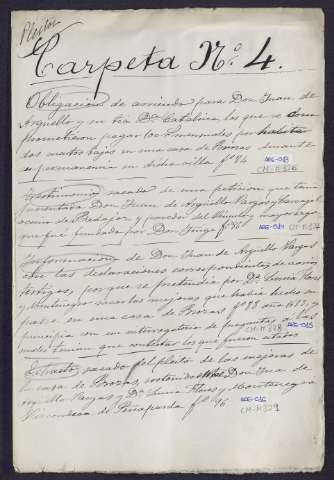 Pleitos
Carpeta Nº 4.
Obligacion de arriendo para Don Juan de
Arguello y su tia Dª Catalina, los que se com
prometieron pagar 100 mensuales por habitar
dos cuartos bajos en una casa de Brozas durante
su permanencia en dicha villa fº 84
AEG-013
CM-M 326
Testimonio sacado de una peticion que tenia
presentada Don Juan de Arguello Vargas y Carvajal
vecino de Badajoz y poseedor del vinculo y mayorazgo
que fué fundado por Don Iñigo fº 86
AEG-014
CM-M 327
Informacion de Don Juan de Arguello Vargas
con las declaraciones correspondientes de varios
testigos, por que se pretendia por Dª Lucia Flores
y Montenegro sacar las mejoras que habia hecho su
padre en una casa de Brozas fº 88 año 1783, y
principia con un interrogatorio de preguntas á las
cuales tenian que contestar los que fueron citados
AEG-015
CM-M 328
Extracto sacado del pleito de las mejoras de
la casa de Brozas, sostenido entre Don Juan de
Arguello Vargas y Dª Lucia Flores y Montenegro
Vizcondesa de Peñaparda fº 96
AEG-016
CM-M 329